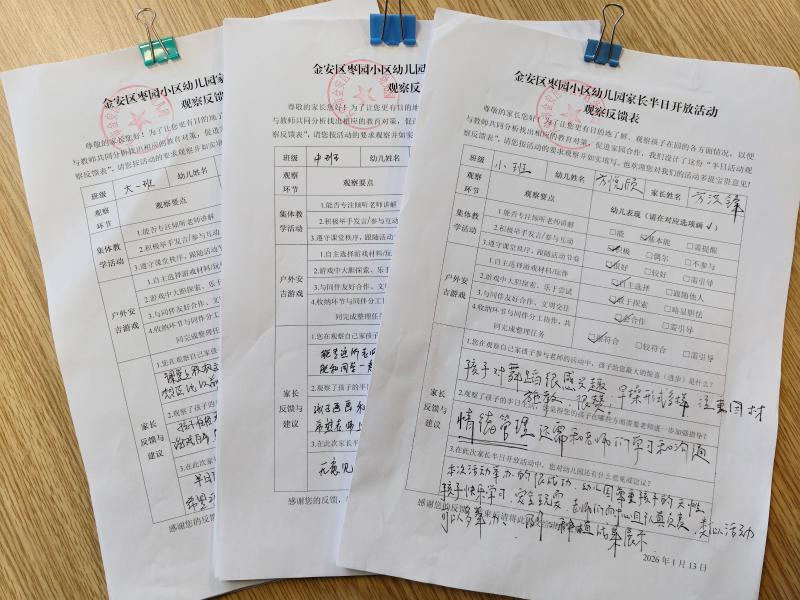 金安区枣园小区幼儿园家
观察反馈表
尊敬的家长您好！为了让您更有目的地
与教师共同分析找出相应的教育对策，促
察反馈表"，请您按活动的要求观察并如
班级 大一班 幼儿姓名
观察环节 观察要点
集体教学活动
1.能否专注倾听老师讲解
2.积极举手发言/参与互动
3.遵守课堂秩序，跟随活动节
户外安吉游戏
1.自主选择游戏材料/玩
2.游戏中大胆探索、乐于
3.与同伴友好合作、
4.收纳环节与同伴分
同完成整理任务
家长反馈与建议
1.您在观察自己家孩
2.观察了孩子的
3.在此次家长
半日
希望
感谢您的反馈，
金安区枣园小区幼儿园
观察反
尊敬的家长您好！为了让您更有目的
与教师共同分析找出相应的教育对策，
察反馈表"，请您按活动的要求观察并如
班级 中班 幼儿姓名
观察环节 观察要点
集体教学活动
1.能否专注倾听老师讲解
2.积极举手发言/参与互动
3.遵守课堂秩序，跟随活动
户外安吉游戏
1.自主选择游戏材料/玩
2.游戏中大胆探索、乐于
3.与同伴友好合作、
4.收纳环节与同伴分工
同完成整理任务
家长反馈与建议
1.您在观察自己家孩子
2.观察了孩子的半
3.在此次家长半
无意见
感谢您的反馈，
金安区枣园小区幼儿园家长半日开放活动
观察反馈表
尊敬的家长您好！为了让您更有目的地了解、观察孩子在园的各方面情况，以便
与教师共同分析找出相应的教育对策，促进家园合作，我们设计了这份"半日活动观
察反馈表"，请您按活动的要求观察并如实填写。也欢迎您对我们的活动多提宝贵意见！
班级 小班 幼儿姓名 方悦颀 家长姓名 方汉锋
观察环节 观察要点 幼儿表现（请在对应选项画√）
集体教学活动
1.能否专注倾听老师讲解 □能 ☑基本能 □需提醒
2.积极举手发言/参与互动 ☑积极 □偶尔 □不参与
3.遵守课堂秩序，跟随活动节奏 ☑很好 □较好 □需引导
户外安吉游戏
1.自主选择游戏材料/玩伴 ☑自主选择 □跟随他人
2.游戏中大胆探索、乐于尝试 ☑敢于探索 □略显胆怯
3.与同伴友好合作、文明交往 ☑会合作 □需引导
4.收纳环节与同伴分工协作，共
同完成整理任务 ☑很符合 □较符合 □需引导
家长反馈与建议
1.您在观察自己家孩子参与老师的活动中，孩子给您最大的惊喜（进步）是什么？
孩子对舞蹈很感兴趣
早操形式多样 注重因材
施教，很棒！
2.观察了孩子的半日生活，您觉得您的孩子在哪些方面需要老师进一步加强指导？
情绪管理还需和老师们学习和沟通
3.在此次家长半日开放活动中，您对幼儿园还有什么意见或建议？
本次活动举办的很成功，幼儿园尊重孩子的天性
孩子快乐学习 安全玩耍，老师们耐心且认真负责，类似活动
可以多举办
成果展示．
感谢您的反馈，
2026年1月13日